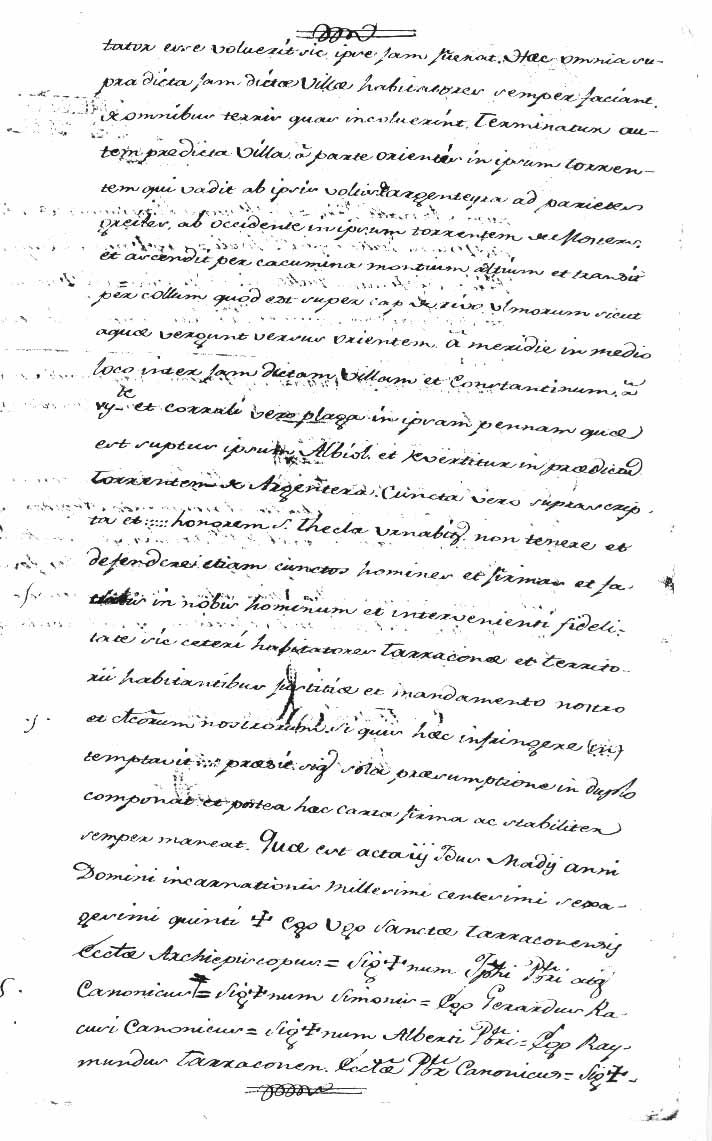 tator esse voluerit sic ipse jam fuerat. Hæc omnia su-
pradicta jam dictæ Villæ habitatores semper faciant.
de omnibus terris quas incoluerint. Terminatur au-
tem predicta Villa, â parte orientis in ipsum torren-
tem qui vadit ab ipsis voltis d'argenteyra ad parietes
ab occidente in ipsum torrentem de
et ascendit per cacumina montium altium et transit
per collum quod est super cap de rivo Vlmorum sicut
aquæ vergunt versus orientem. â meridie in medio
loco inter jam dictam Villam et Constantinum, â
et corrali vero plaga in ipsam pennam quæ
est suptus ipsum Albiol. et revertitur in prædictũ
Torrentem de Argentera. Cuncta vero suprascrip-
ta et ..... honorem S. Thecla non tenere et
defendere etiam cunctos homines et firmas et fa-
in nobis hominum et intervenienti fideli-
tate sic ceteri habitatores Tarraconæ et territo-
rii habitantibus justitiæ et mandamento nostro
et nostrorum. Si quis hæc infringere
temptavit .... sola præsumptione in duplo
componat et postea hæc carta firma ac stabiliter
semper maneat. Quæ est acta iij Idus Madij anni
Domini incarnationis Millesimi centesimi sexa-
gesimi quinti ✝ Ego Vgo Sanctæ Tarraconensis
Ecctæ Archiepiscopus = Sig✝num Pbri atq
Canonicus = Sig✝num Simonis = Ego Gerardus Ra-
cusi Canonicus = Sig✝num Alberti Pbri = Ego Ray-
mundus Tarraconen. Ecctæ Pbr Canonicus = Sig✝-